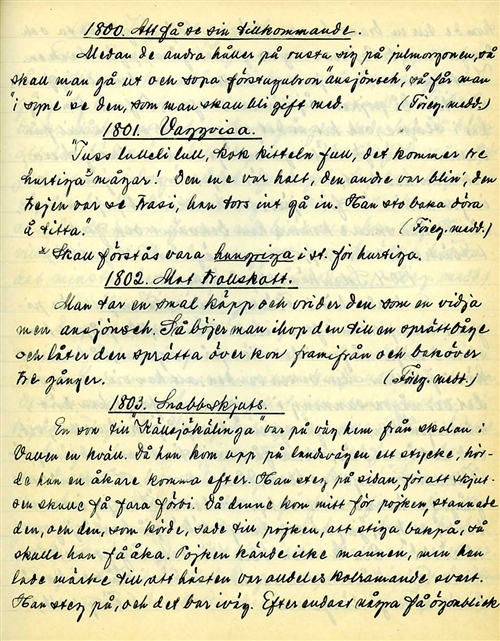 1800. Att få se sin tillkommande.
Medan de andra håller på rusta sig på julmorgonen, så
skall man gå ut och sopa förstugubron "ansjönsch, så få man
"i syne" se den, som man skall bli gift med. (Föreg. medd.)
1801. Vaggvisa.
"Tuss lulleli lull, kok kitteln full, det kommer tre
hurtiga* mågar! Den ene var halt, den andre var blin', den
trejen var se trasi, han tors int gå in. Han sto baka döra
å titta." (Föreg. medd.)
* Skall förstås vara hungriga i st. för hurtiga.
1802. Mot trollskott.
Man tar en smal käpp och vrider den som en vidja
men ansjönsch. Så böjer man ihop den till en sprättbåge
och låter den sprätta över kon framifrån och baköver
tre gånger. (Föreg. medd.)
1803. Snabbskjuts.
En son till "Källsjökälinga" var på väg hem från skolan i
Vallen en kväll. Då han kom opp på landsvägen ett stycke, hör-
de han en åkare komma efter. Han steg på sidan, för att skjut-
sen skulle få fara förbi. Då denne kom mitt för pojken, stannade
den, och den, som körde, sade till pojken, att stiga bakpå, så
skulle han få åka. Pojken kände icke mannen, men han
lade märke till, att hästen var alldeles kolramande svart.
Han steg på, och det bar iväg. Efter endast några få ögonblick